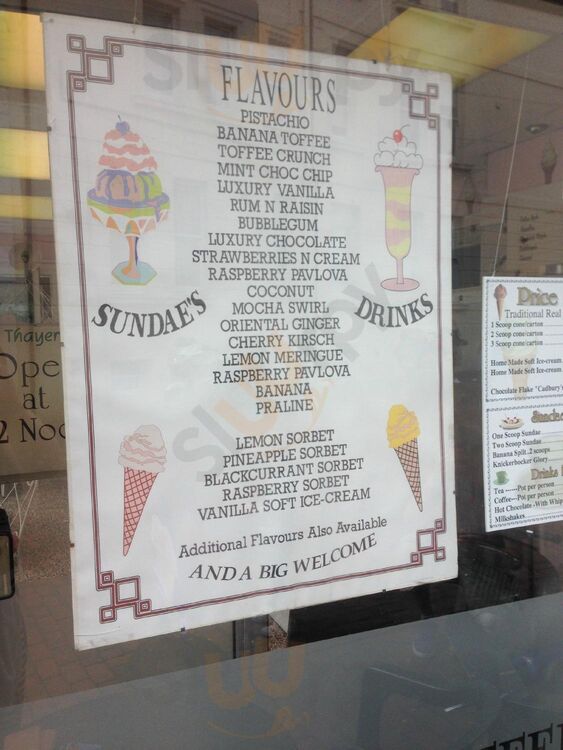 FLAVOURS
PISTACHIO
BANANA TOFFEE
TOFFEE CRUNCH
MINT CHOC CHIP
LUXURY VANILLA
RUM N RAISIN
BUBBLEGUM
LUXURY CHOCOLATE
STRAWBERRIES N CREAM
RASPBERRY PAVLOVA
COCONUT
MOCHA SWIRL
ORIENTAL GINGER
CHERRY KIRSCH
LEMON MERINGUE
RASPBERRY PAVLOVA
BANANA
PRALINE
SUNDAE'S
DRINKS
LEMON SORBET
PINEAPPLE SORBET
BLACKCURRANT SORBET
RASPBERRY SORBET
VANILLA SOFT ICE-CREAM
Additional Flavours Also Available
AND A BIG WELCOME
Thayer
Ope
at
2 Noo
Price
Traditional Real
1 Scoop cone/carton
2 Scoop cone/carton
3 Scoop cone/carton
Home Made Soft Ice-cream
Home Made Soft Ice-cream
Chocolate Flake "Cadbury's
One Scoop Sundae
Two Scoop Sundae
Banana Split .2 scoops
Knickerbocker Glory
Drinks
Tea -----Pot per person
Coffee---Pot per person
Hot Chocolate -With Whip
Milkshakes